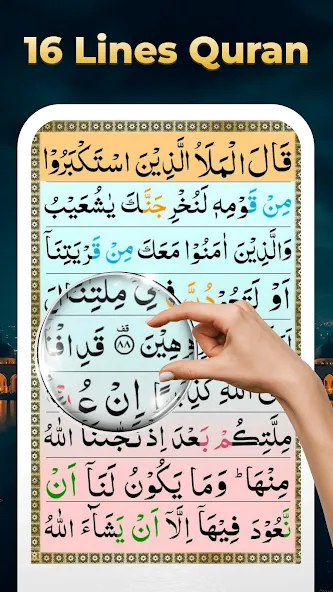 16 Lines Quran
قَالَ الْمَلَاُ الَّذِيْنَ اسْتَكْبَرُوْا
مِنْ قَوْمِهٖ لَنُخْرِجَنَّكَ يٰشُعَيْبُ
وَالَّذِيْنَ اٰمَنُوْا مَعَكَ مِنْ قَرْيَتِنَاۤ
اَوْ لَتَعُوْدُنَّ فِيْ مِلَّتِنَا
رِهِيْنَ ۸۸ قَدِ
اللّٰهِ كَذِبًا اِنْ
مِلَّتِكُمْ بَعْدَ اِذْ نَجّٰىنَا اللّٰهُ
مِنْهَا ؕ وَمَا يَكُوْنُ لَنَاۤ اَنْ
نَّعُوْدَ فِيْهَاۤ اِلَّاۤ اَنْ يَّشَآءَ اللّٰهُ